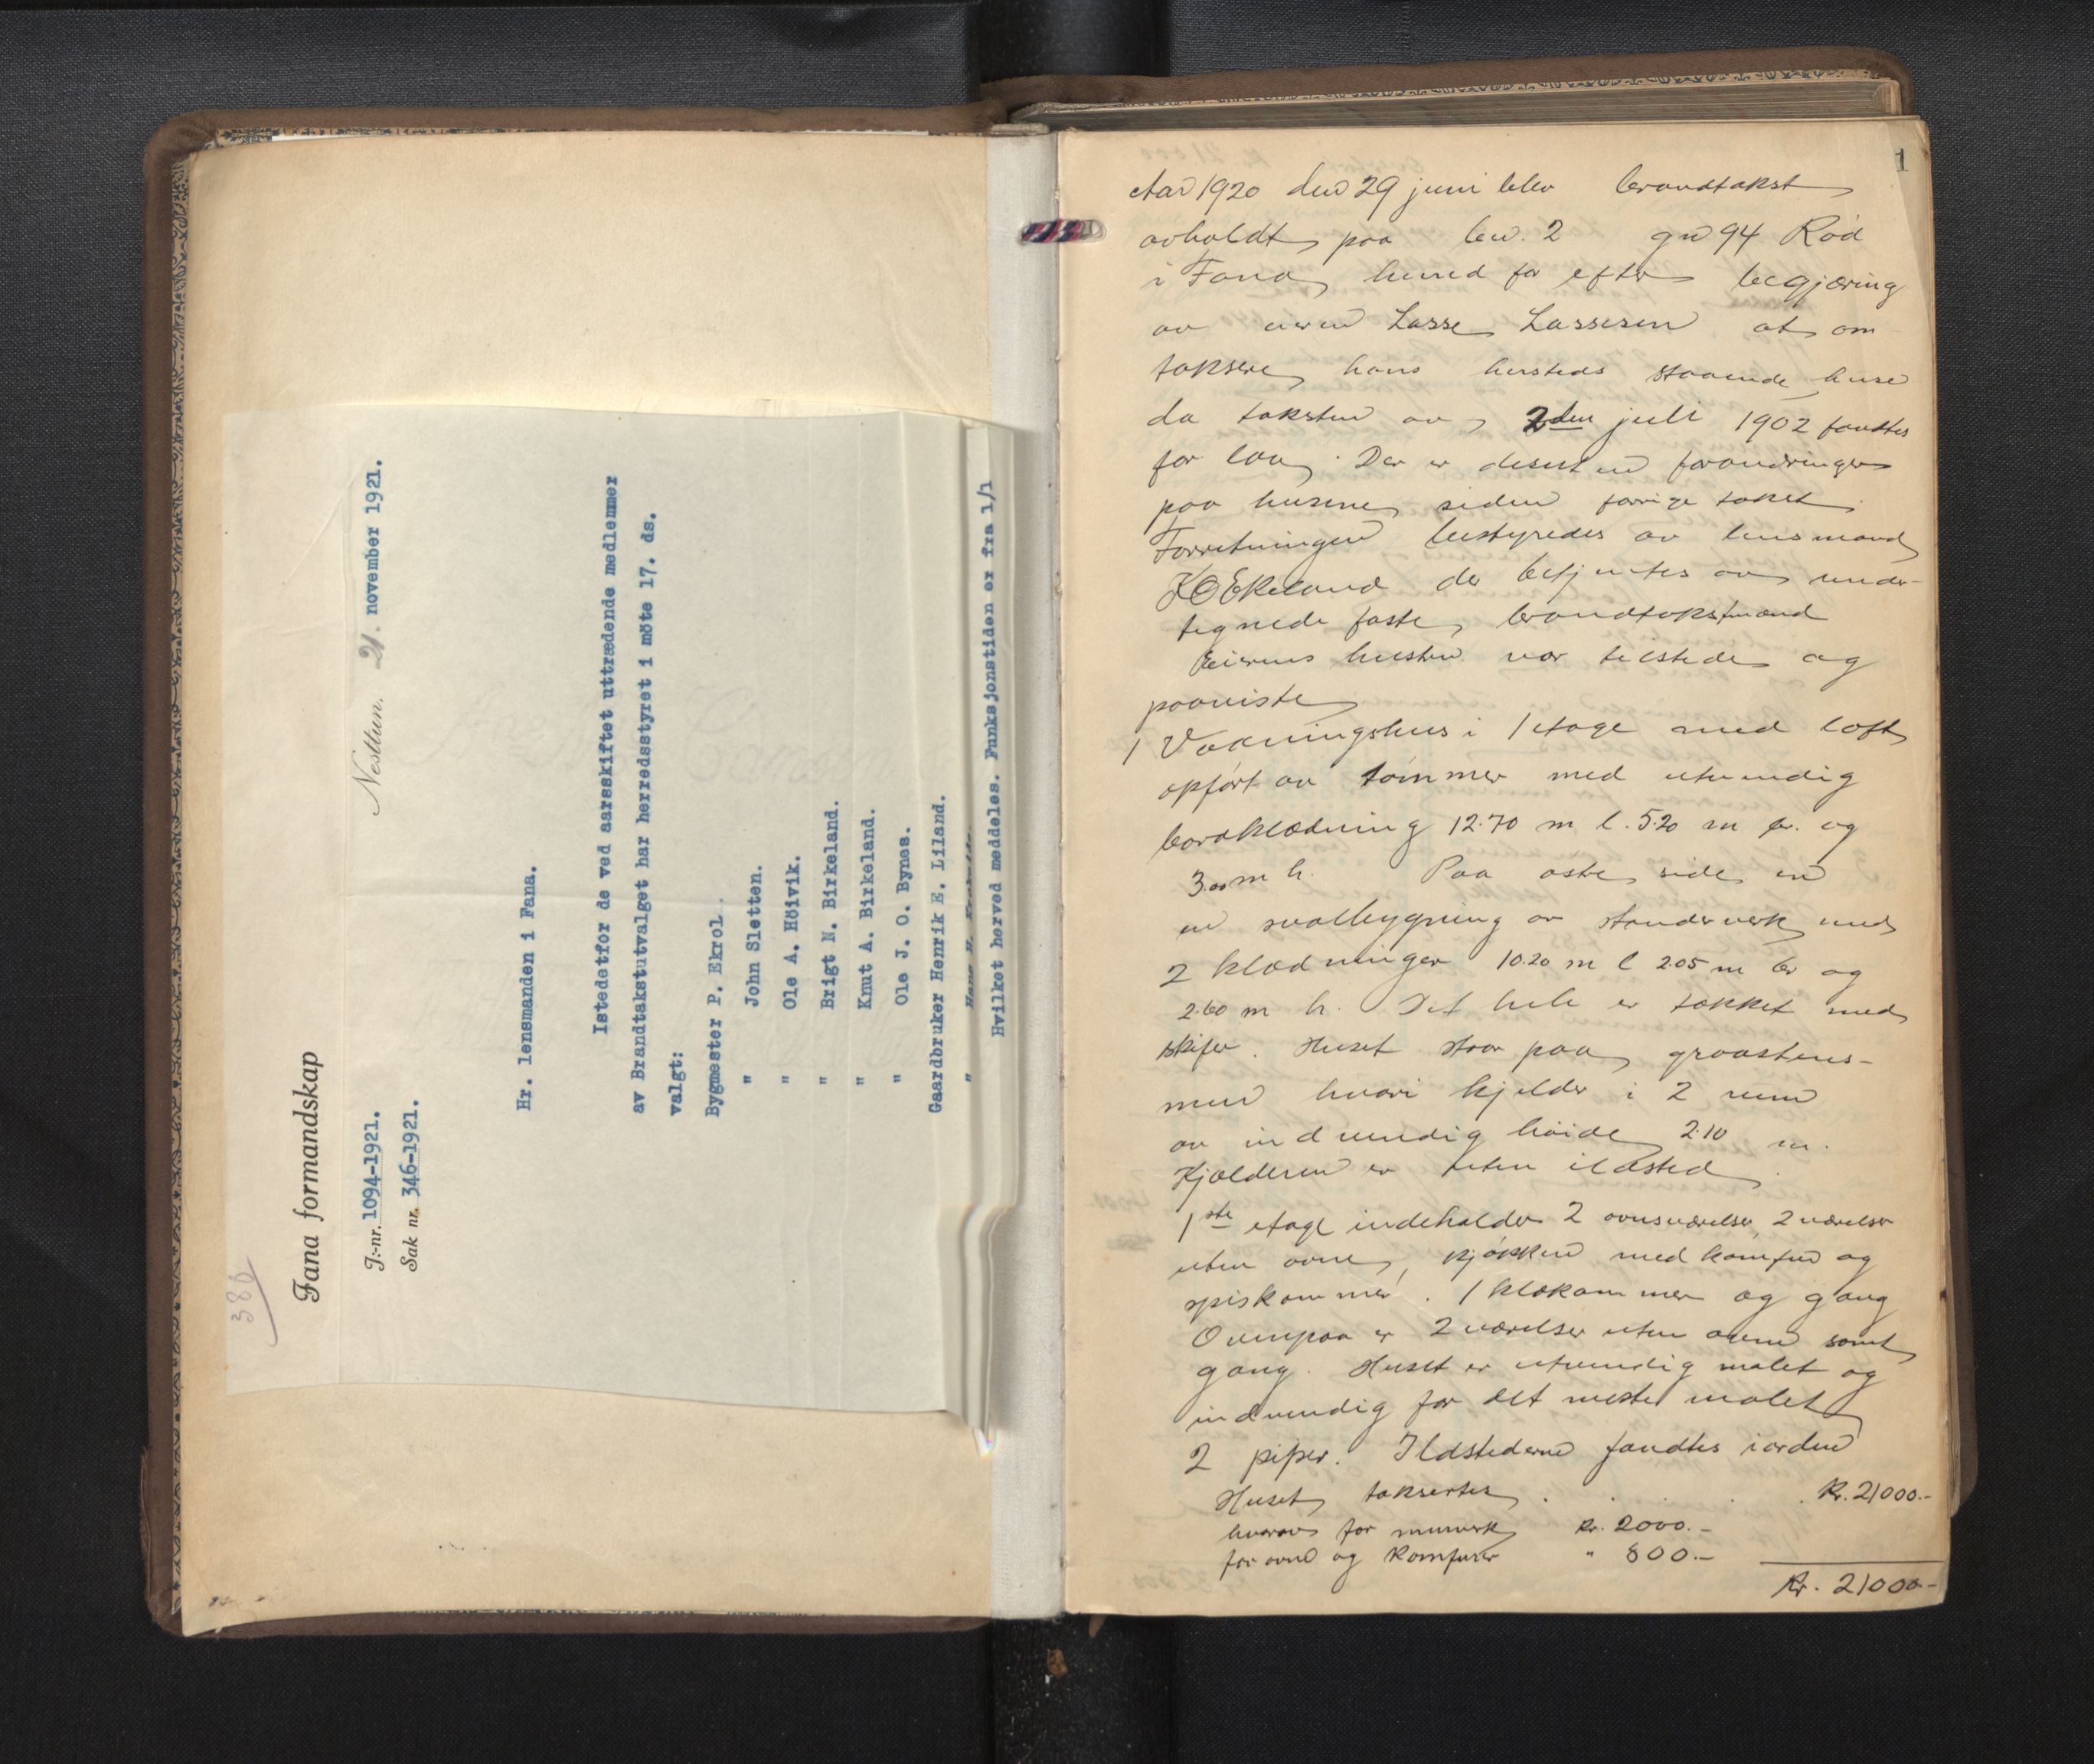 386
Fana formandskap
J.-nr. 1094-1921.
Sak nr. 346-1921.
Nesttun, 21. november 1921.
Hr. lensmanden i Fana.
Istedetfor de ved aarsskiftet uttrædende medlemmer
av Brandtakstutvalget har herredsstyret i möte 17. ds.
valgt:
Bygmester P. Ekrol.
" John Sletten.
" Ole A. Höivik.
" Brigt N. Birkeland.
" Knut A. Birkeland.
" Ole J. O. Bynes.
Gaardbruker Henrik E. Liland.
" Hans
Hvilket herved meddeles. Funksjonstiden er fra 1/1
1
Aar 1920 den 29 juni blev brandtakst
avholdt paa bn. 2 gn 94 Rød
i Fana herred for efter begjæring
av eieren Lasse Lassesen at om
taksere hans hersteds staaende huse
da taksten av 2den juli 1902 fandtes
for lav. Der er desuten forandringer
paa husene siden forrige takst.
Forretningen bestyredes av lensmand
K O Ekeland der betjentes av under-
tegnede faste brandtakstmænd
Eierens hustru var tilstede og
paaviste
1 Vaaningshus i 1 etage med loft
opført av tømmer med utvendig
bordklædning 12.70 m l. 5.20 m br. og
3.00 m h. Paa østre side er
en svalbygning av standerverk med
2 klædninger 10.20 m l 2.05 m br og
2.60 m h. Det hele er tækket med
skifer. Huset staar paa graastens-
mur hvori kjelder i 2 rum
av indvendig høide 2.10 m.
Kjælderen er uten ildsted.
1ste etage indeholder 2 ovnsværelser, 2 værelser
uten ovne, kjøkken med komfur og
spiskammer. 1 klækammer og gang
Ovenpaa er 2 værelser uten ovne samt
gang. Huset er utvendig malet og
indvendig for det meste malet
2 piper. Ildstederne fandtes i orden
Huset takseres . . . . Kr. 21000.-
hvorav for murverk Kr. 2000.-
for ovne og komfurer " 800.-
Kr. 21000.-